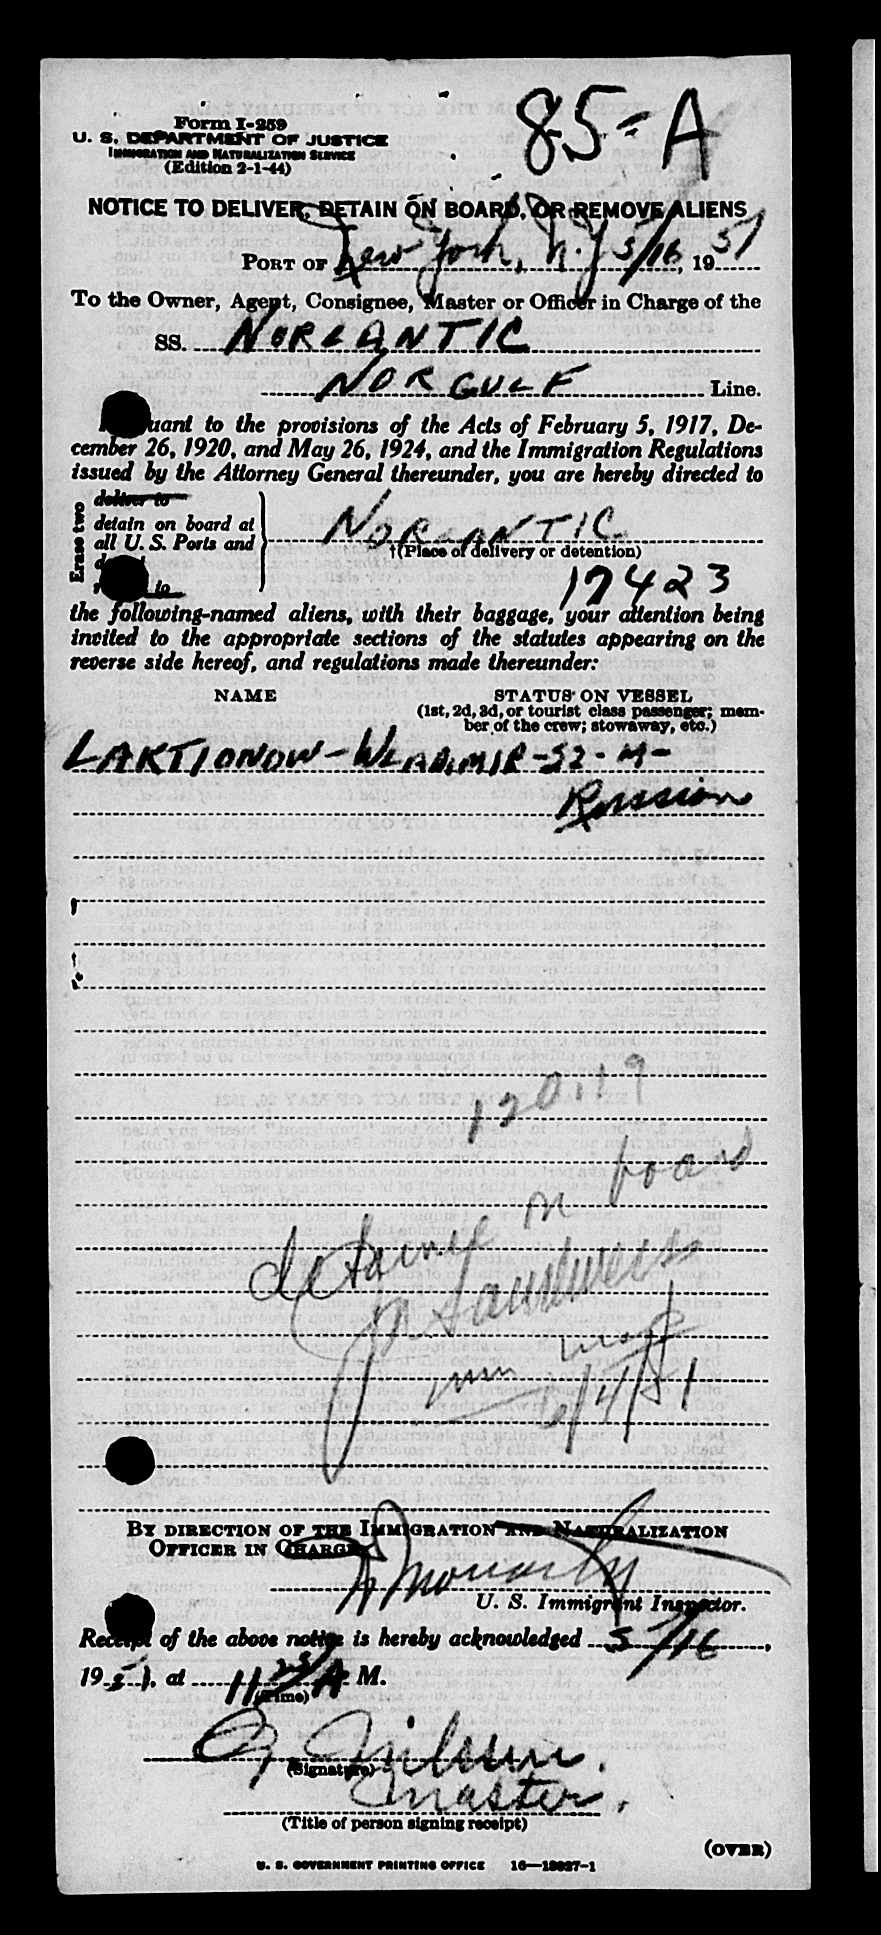 85-A
Form I-259
U. S. DEPARTMENT OF JUSTICE
IMMIGRATION AND NATURALIZATION SERVICE
(Edition 2-1-44)
NOTICE TO DELIVER, DETAIN ON BOARD, OR REMOVE ALIENS
PORT OF New York, N.Y 5/16, 1951
To the Owner, Agent, Consignee, Master or Officer in Charge of the
SS. NORLANTIC
NORGULF Line.
uant to the provisions of the Acts of February 5, 1917, De-
cember 26, 1920, and May 26, 1924, and the Immigration Regulations
issued by the Attorney General thereunder, you are hereby directed to
Erase two
deliver to
detain on board at
all U. S. Ports and
to
NORLANTIC
†(Place of delivery or detention)
17423
the following-named aliens, with their baggage, your attention being
invited to the appropriate sections of the statutes appearing on the
reverse side hereof, and regulations made thereunder:
NAME STATUS ON VESSEL
(1st, 2d, 3d, or tourist class passenger; mem-
ber of the crew; stowaway, etc.)
LAKTIONOW-WLADIMIR-52-M-
Russian
120.19
detained on board
6/4/51
BY DIRECTION OF THE IMMIGRATION AND NATURALIZATION
OFFICER IN CHARGE
U. S. Immigrant Inspector.
Receipt of the above notice is hereby acknowledged 5/16,
1951, at 11 25 A M.
(Time)
(Signature)
Master.
(Title of person signing receipt)
(OVER)
U. S. GOVERNMENT PRINTING OFFICE 16—18027-1